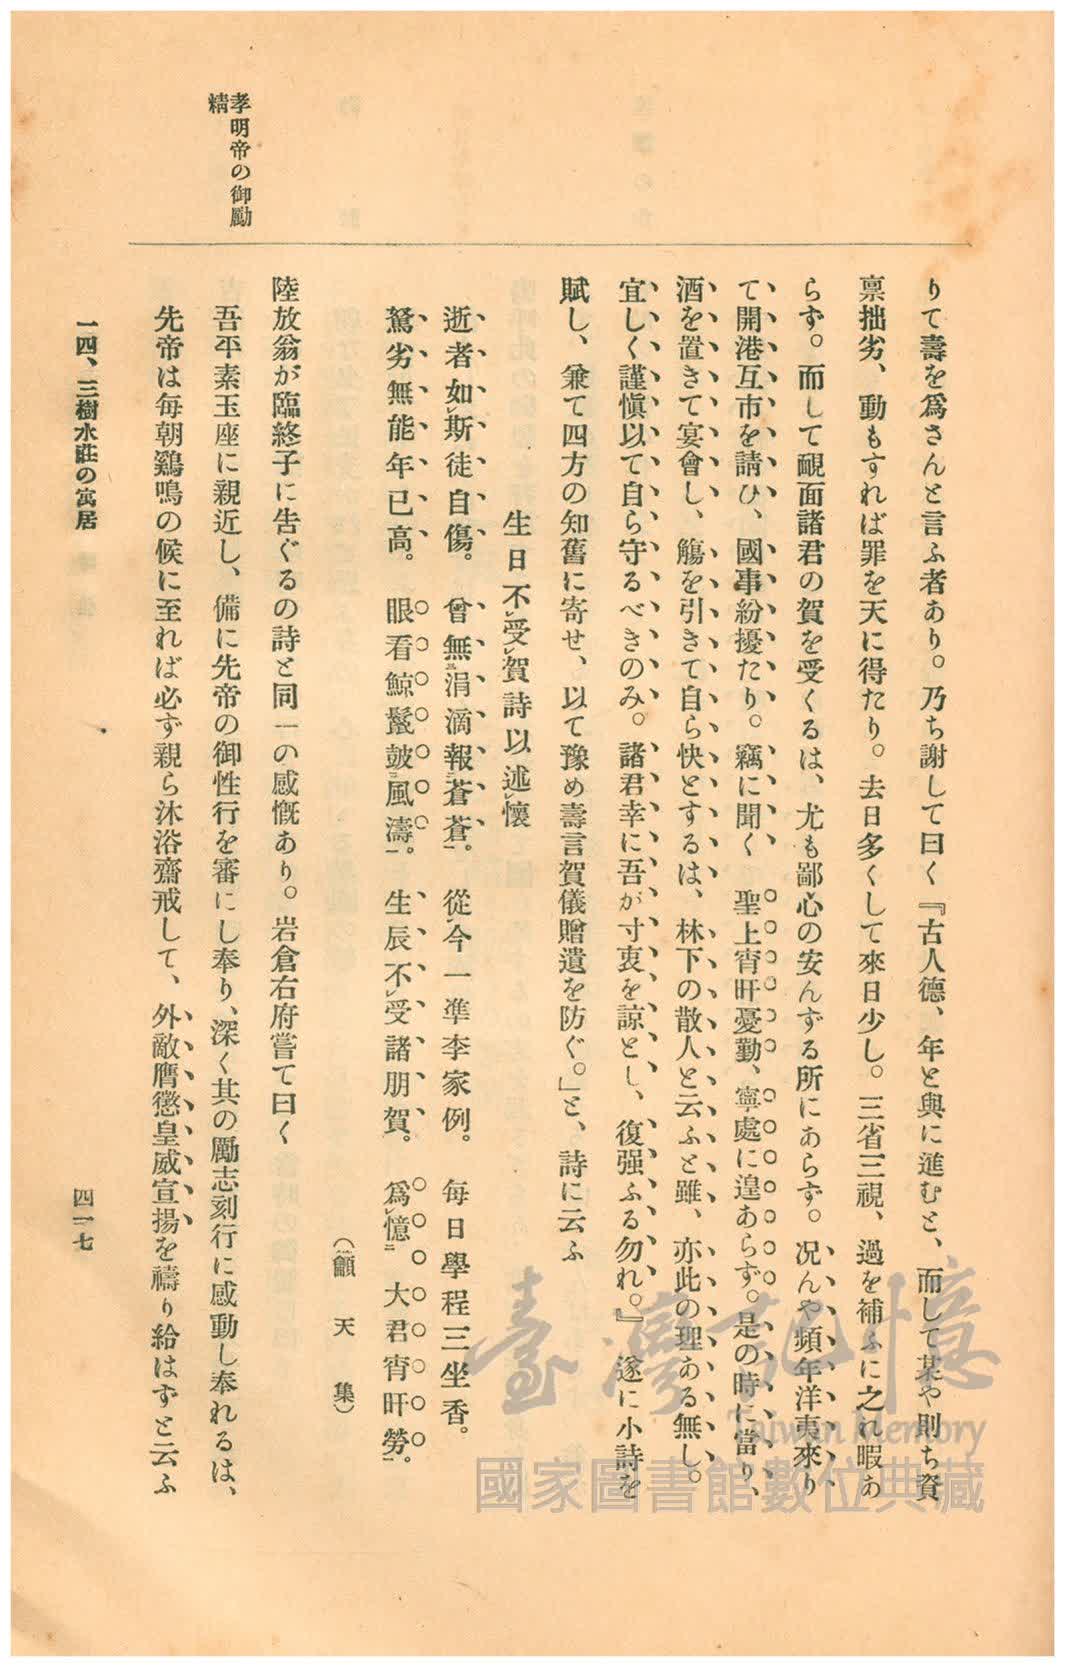 孝明帝の御勵
精
りて壽を爲さんと言ふ者あり。乃ち謝して曰く『古人德、年と與に進むと、而して某や則ち資
禀拙劣、動もすれば罪を天に得たり。去日多くして來日少し。三省三視、過を補ふに之れ暇あ
らず。而して靦面諸君の賀を受くるは、尤も鄙心の安んずる所にあらず。况んや頻年洋夷來り
て開港互市を請ひ、國事紛擾たり。竊に聞く　聖上宵旰憂勤、寧處に遑あらず。是の時に當り、
酒を置きて宴會し、觴を引きて自ら快とするは、林下の散人と云ふと雖、亦此の理ある無し。
宜しく謹愼以て自ら守るべきのみ。諸君幸に吾が寸衷を諒とし、復强ふる勿れ。』遂に小詩を
賦し、兼て四方の知舊に寄せ、以て豫め壽言賀儀贈遺を防ぐ。」と、詩に云ふ
生日不レ受レ賀詩以述レ懷
逝者如レ斯徒自傷。　曾無三涓滴報二蒼蒼一。　從レ今一準李家例。　每日學程三坐香。
駑劣無能年已高。　眼看鯨鬣皷二風濤一。　生辰不レ受諸朋賀。　爲レ憶二　大君宵旰勞一。
（顱天集）
陸放翁が臨終子に吿ぐるの詩と同一の感慨あり。岩倉右府嘗て曰く
吾平素玉座に親近し、備に先帝の御性行を審にし奉り、深く其の勵志刻行に感動し奉れるは、
先帝は每朝鷄鳴の候に至れば必ず親ら沐浴齋戒して、外敵膺懲皇威宣揚を禱り給はずと云ふ
一四、三樹水莊の寓居
四一七
臺灣記憶
Taiwan Memory
國家圖書館數位典藏